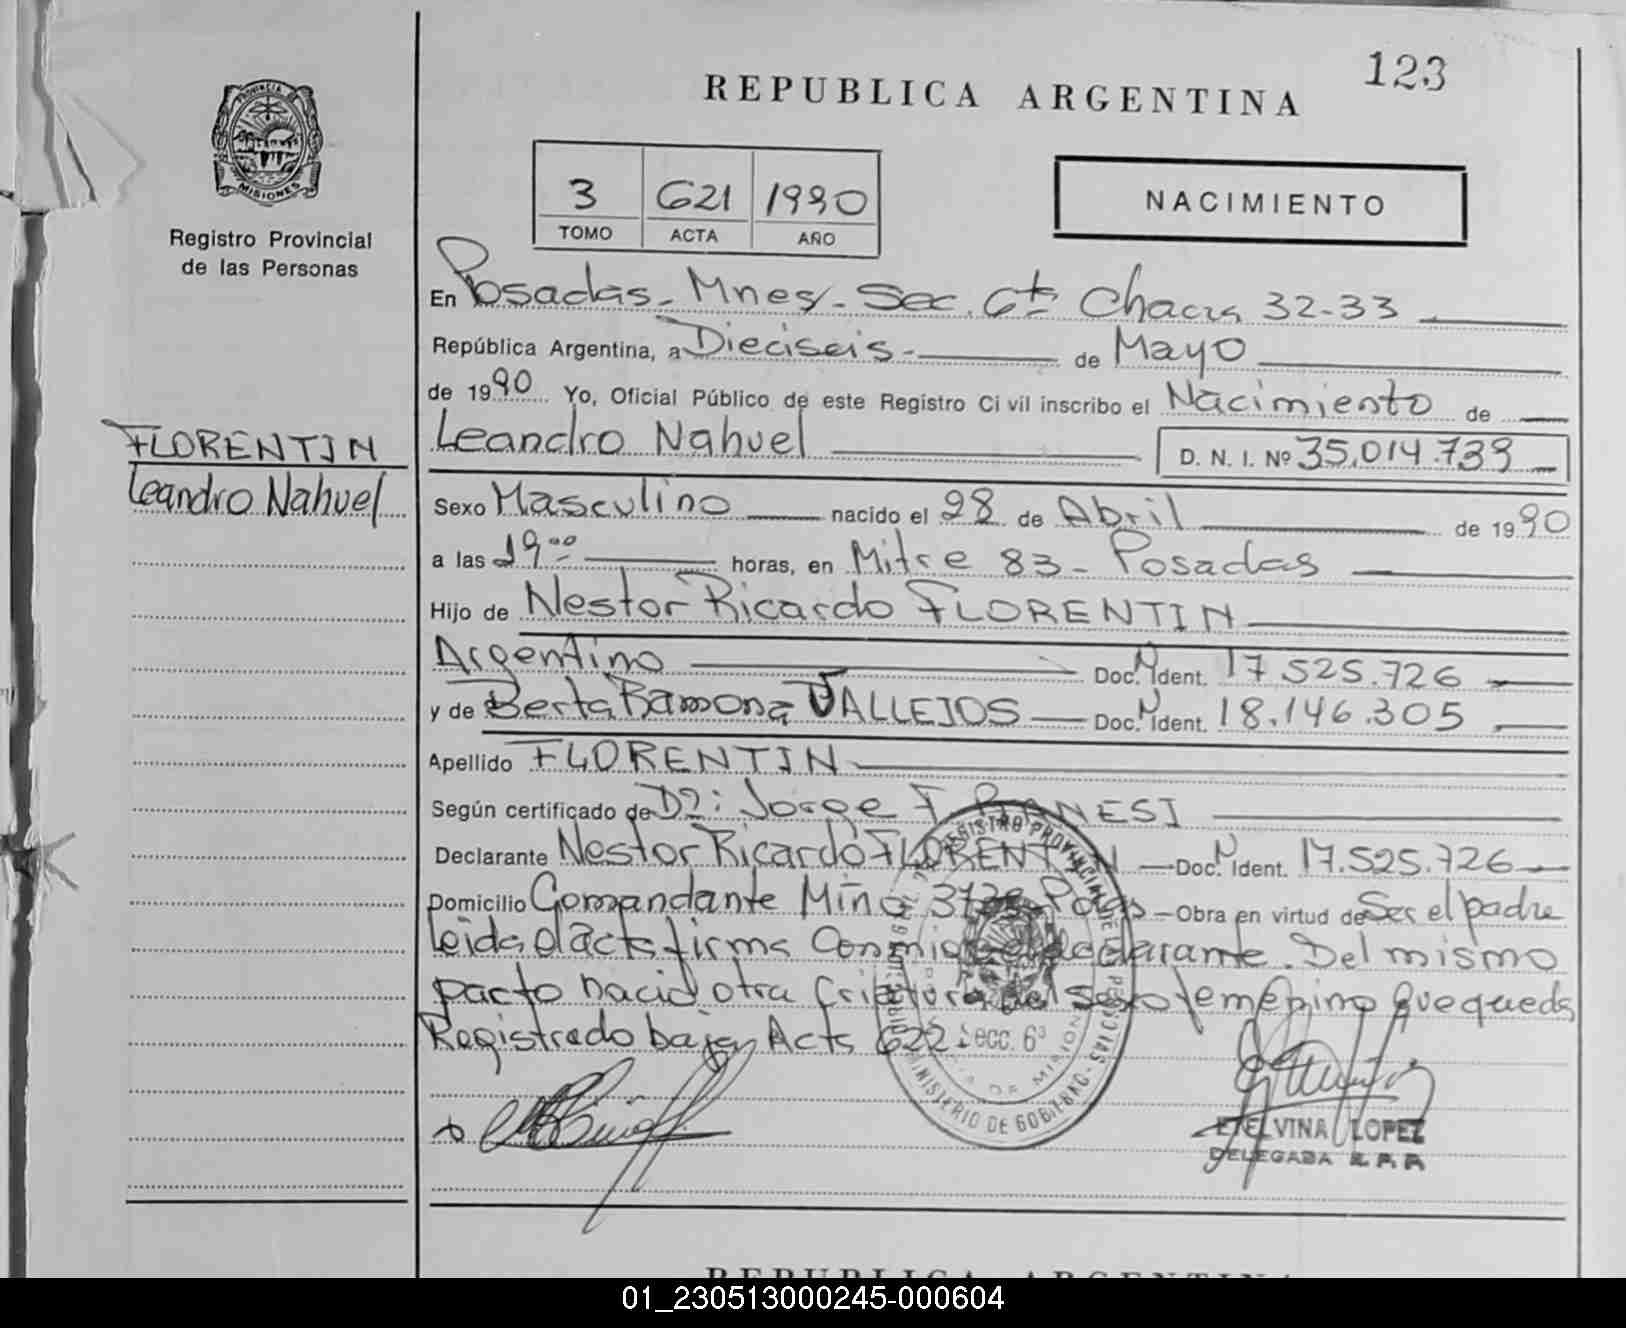 123
REPUBLICA ARGENTINA
PROVINCIA DE MISIONES
Registro Provincial
de las Personas
3 621 1990
TOMO ACTA AÑO
NACIMIENTO
En Posadas - Mnes - Sec. 6ta Chacra 32-33
República Argentina, a Dieciseis - de Mayo
de 1990 Yo, Oficial Público de este Registro Civil inscribo el Nacimiento de
Leandro Nahuel D. N. I. Nº 35.014.739
FLORENTIN
Leandro Nahuel
Sexo Masculino nacido el 28 de Abril de 1990
a las 19:00 horas, en Mitre 83 - Posadas
Hijo de Nestor Ricardo FLORENTIN
Argentino Doc. N Ident. 17.525.726
y de Berta Ramona VALLEJOS Doc. N Ident. 18.146.305
Apellido FLORENTIN
Según certificado de Dr: Jorge F
Declarante Nestor Ricardo FLORENTIN Doc. N Ident. 17.525.726
Domicilio Comandante Miño Pdas - Obra en virtud de Ser el padre
leida el acta firma Conmigo el declarante. Del mismo
parto nació otra Criatura del sexo femenino que queda
Registrado bajo Acta 622
REGISTRO PROVINCIAL DE LAS PERSONAS
Secc. 6ª
MINISTERIO DE GOBIERNO
ETELVINA LOPEZ
DELEGADA R.P.P.
REPUBLICA ARGENTINA
01_230513000245-000604